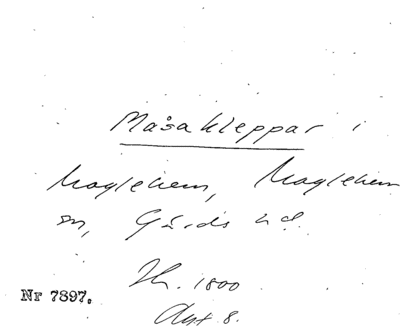 Måsakleppar i
Maglehem, Maglehem
sn, Gärds hd.
Th. 1800
Nr 7897.
Avst 8.